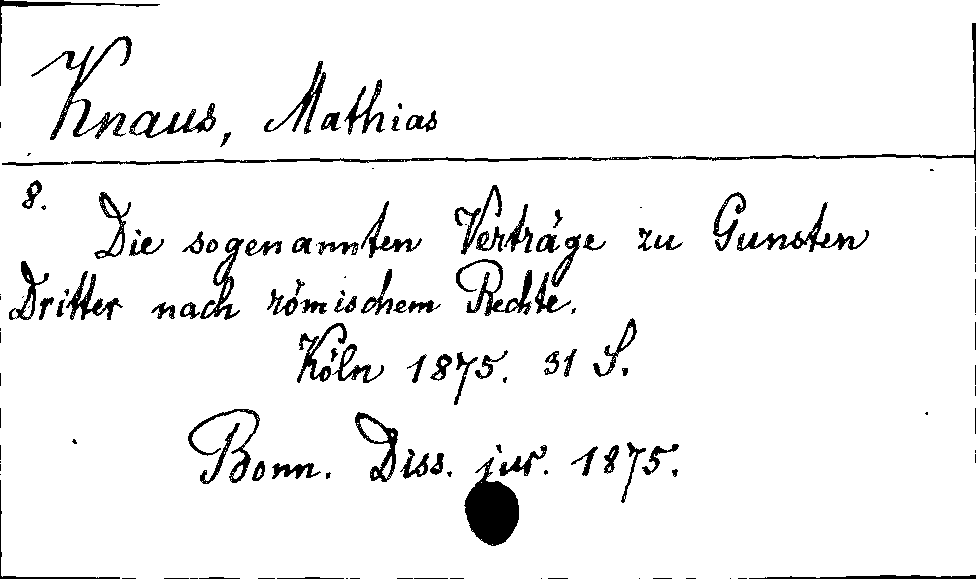 Knaus, Mathias
8.
Die sogenannten Verträge zu Gunsten
Dritter nach römischem Rechte.
Köln 1875. 31 S.
Bonn. Diss. jur. 1875.